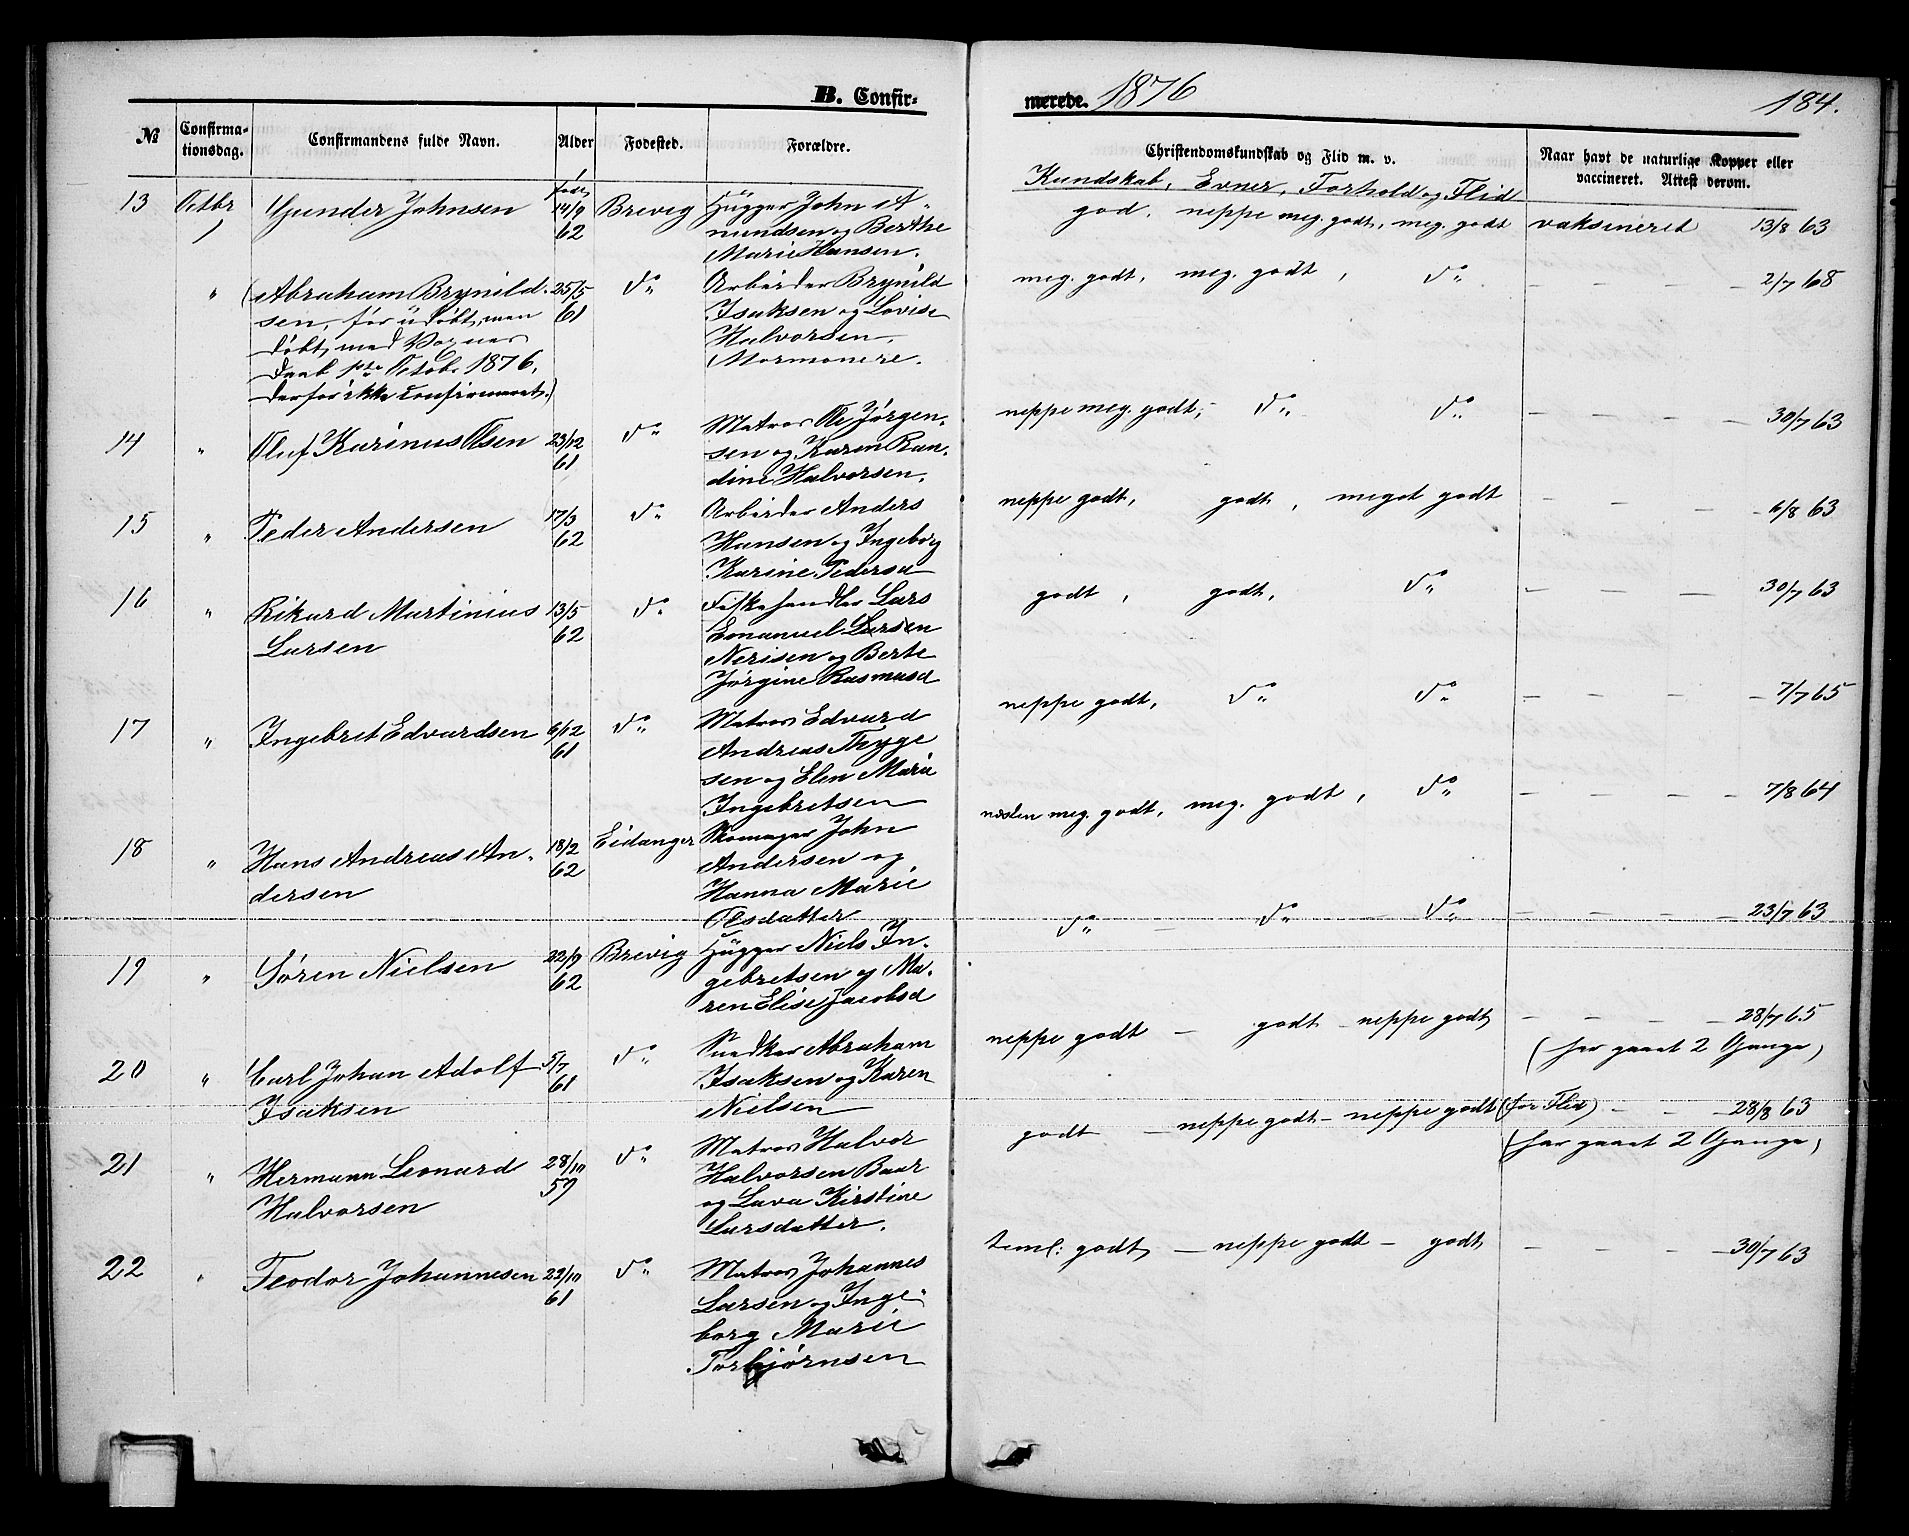 B. Confir-
merede. 1876
184.
№
Confirma-
tionsdag.
Confirmandens fulde Navn.
Alder
Fødested.
Forældre.
Christendomskundskab og Flid m. v.
Naar havt de naturlige Kopper eller
vaccineret. Attest derom.
Kundskab, Evner, Forhold og Flid
13 Octbr Gunder Johnsen født 14/9 Brevig Hugger John A-
1 62 mundsen og Berthe
Marie Hansen.
god, neppe meg. godt, meg. godt vaksineret 13/8 63
" (Abraham Brynild- 25/5 do Arbeider Brynild
sen, før udøbt, men 61 Isaksen og Lovise
døbt med Voxnes Halvorsen,
Daab 1ste Octob. 1876, Mormonere.
derfor ikke confirmeret.)
meg. godt, meg. godt, do — — — 2/7 68
14 " Oluf Karinus Olsen 23/12 do Matros Ole Jørgen-
61 sen og Karen Ran-
dine Halvorsen,
neppe meg. godt, do do — — — 30/7 63
15 " Peder Andersen 17/3 do Arbeider Anders
62 Hansen og Ingeborg
Karine Pedersd
neppe godt, godt, meget godt — — — 6/8 63
16 " Rikard Martinius 13/5 do Fiskehandler Lars
Larsen 62 Emanuel Larsen
Nerisen og Berte
Jørgine Rasmusd
godt, godt, do — — — 30/7 63
17 " Ingebret Edvardsen 6/12 do Matros Edvard
61 Andreas Thyge
sen og Elen Marie
Ingebretsen
neppe godt, do do — — — 7/7 65
18 " Hans Andreas An- 18/2 Eidanger Skomager John
dersen 62 Andersen og
Hanna Marie
Olsdatter
næsten meg. godt, meg. godt, do — — — 7/8 64
19 " Søren Nielsen 22/9 Brevig Hugger Niels In-
62 gebretsen og Ma-
ren Elise Jacobsd
do — do — do — — — 23/7 63
20 " Carl Johan Adolf 5/7 do Snedker Abraham
Isaksen 61 Isaksen og Karen
Nielsen
neppe godt — godt — neppe godt — — — 28/7 65
(har gaaet 2 Gange)
21 " Hermann Leonard 28/10 do Matros Halvor
Halvorsen 59 Halvorsen Baar
og Lava Kirstine
Larsdatter.
godt — neppe godt — neppe godt (for Flid) — — 28/8 63
(har gaaet 2 Gange)
22 " Teodor Johannesen 29/10 do Matros Johannes
61 Larsen og Inge-
borg Marie
Torbjørnsen
teml: godt — neppe godt — godt — — — 30/7 63